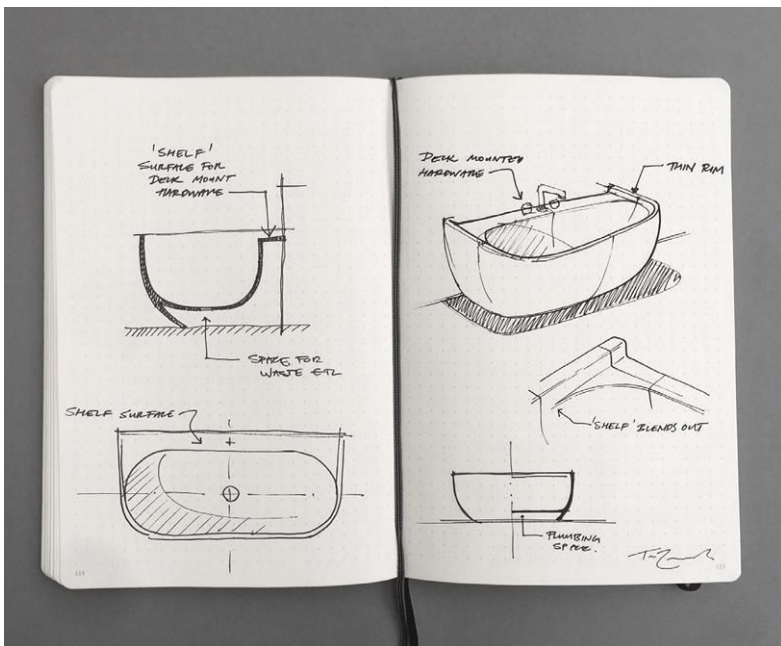 'SHELF'
SURFACE FOR
DECK MOUNT
HARDWARE
SPACE FOR
WASTE ETC
SHELF SURFACE
114
DECK MOUNTED
HARDWARE
THIN RIM
'SHELF' BLENDS OUT
PLUMBING
SPACE.